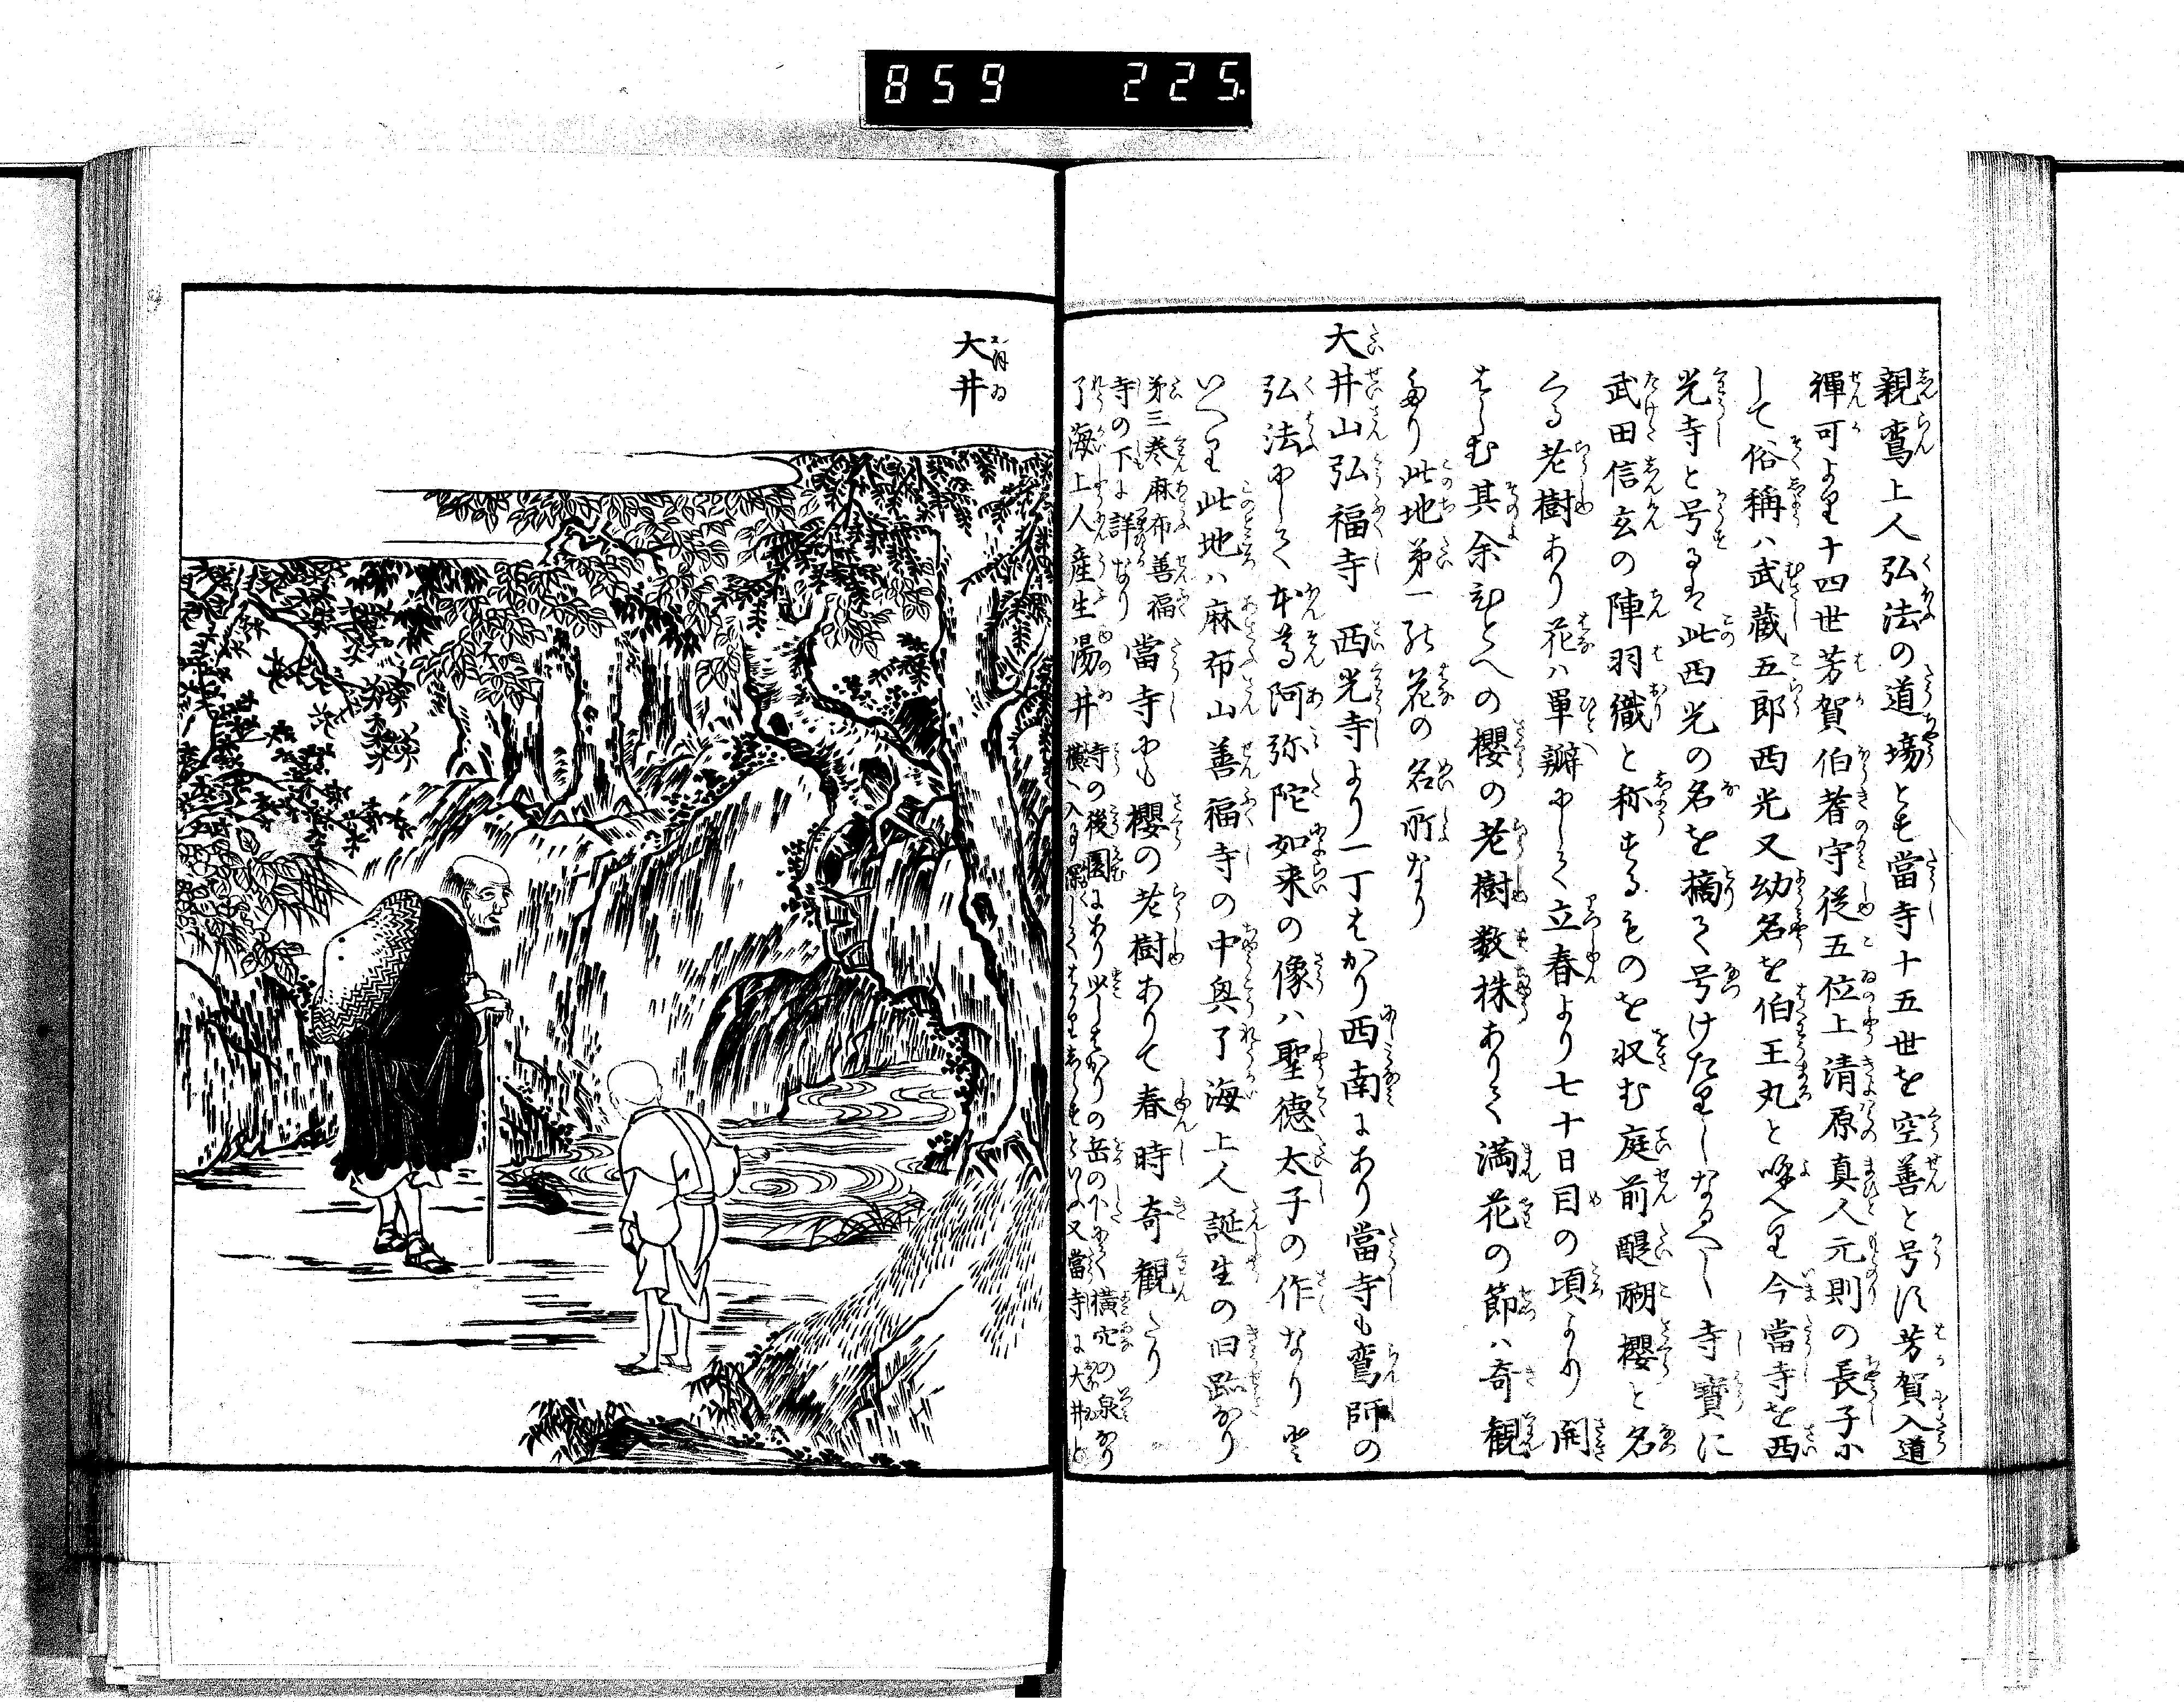 859 225.
親鸞上人弘法の道場とす當寺十五世を空善と号す芳賀入道
禪可より十四世芳賀伯耆守従五位上清原真人元則の長子に
して俗稱ハ武蔵五郎西光又幼名を伯王丸と呼へり今當寺を西
光寺と号るも此西光の名を摘て号けたりしなるへし寺寶に
武田信玄の陣羽織と称するものを収む庭前醍醐櫻と名
くる老樹あり花ハ單瓣にして立春より七十日目の頃より開
きはしむ其余ひとへの櫻の老樹数株ありて満花の節ハ奇観
たり此地第一の花の名所なり
大井山弘福寺 西光寺より一丁はかり西南にあり當寺も鸞師の
弘法にして本尊阿弥陀如来の像ハ聖徳太子の作なりと
いへり此地ハ麻布山善福寺の中興了海上人誕生の旧跡なり
第三巻麻布善福
寺の下に詳なり
當寺にも櫻の老樹ありて春時奇観たり
了海上人産生湯井
寺の後園にあり少しはかりの岳の下にて横穴の泉なり
横へ入事深くしてはかりしらすといふ又當寺に大井と
大井